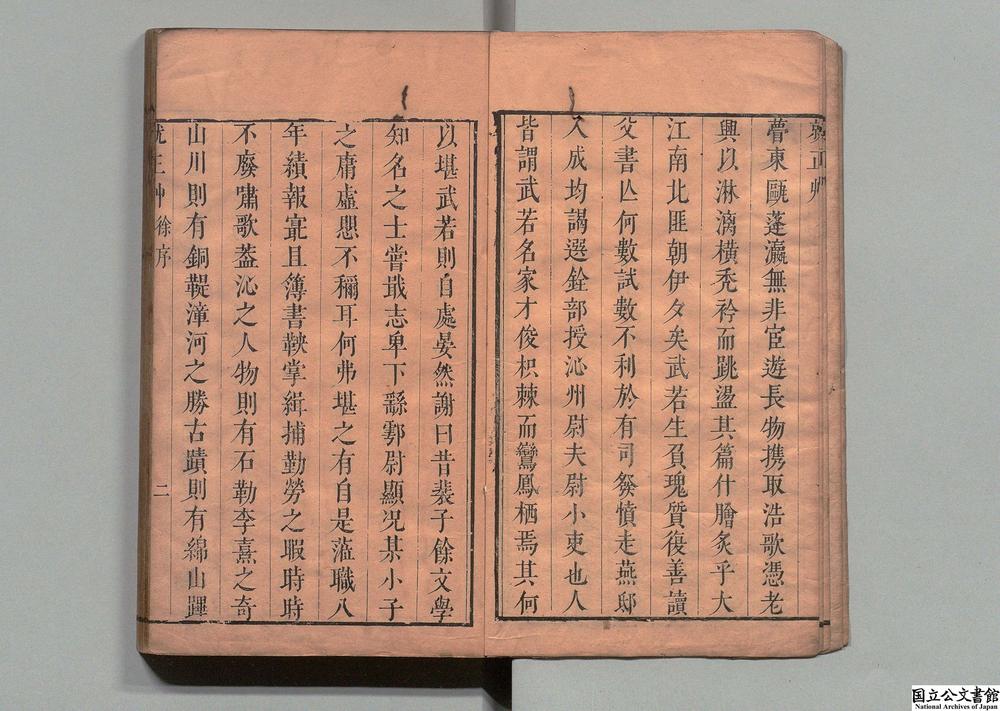 就正艸
嘗東甌蓬瀛無非宦遊長物携取浩歌憑老
興以淋漓橫禿衿而跳盪其篇什膾炙乎大
江南北匪朝伊夕矣武若生負瑰質復善讀
父書亾何數試數不利於有司發憤走燕邸
入成均謁選銓部授沁州尉夫尉小吏也人
皆謂武若名家才俊枳棘而鸞鳳栖焉其何
以堪武若則自處晏然謝曰昔裴子餘文學
知名之士嘗戢志卑下繇鄠尉顯况某小子
之庸虛思不稱耳何弗堪之有自是蒞職八
年績報寔且簿書鞅掌緝捕勤勞之暇時時
不廢嘯歌葢沁之人物則有石勒李熹之奇
山川則有銅鞮漳河之勝古蹟則有綿山
就正艸 徐序 二
国立公文書館
National Archives of Japan